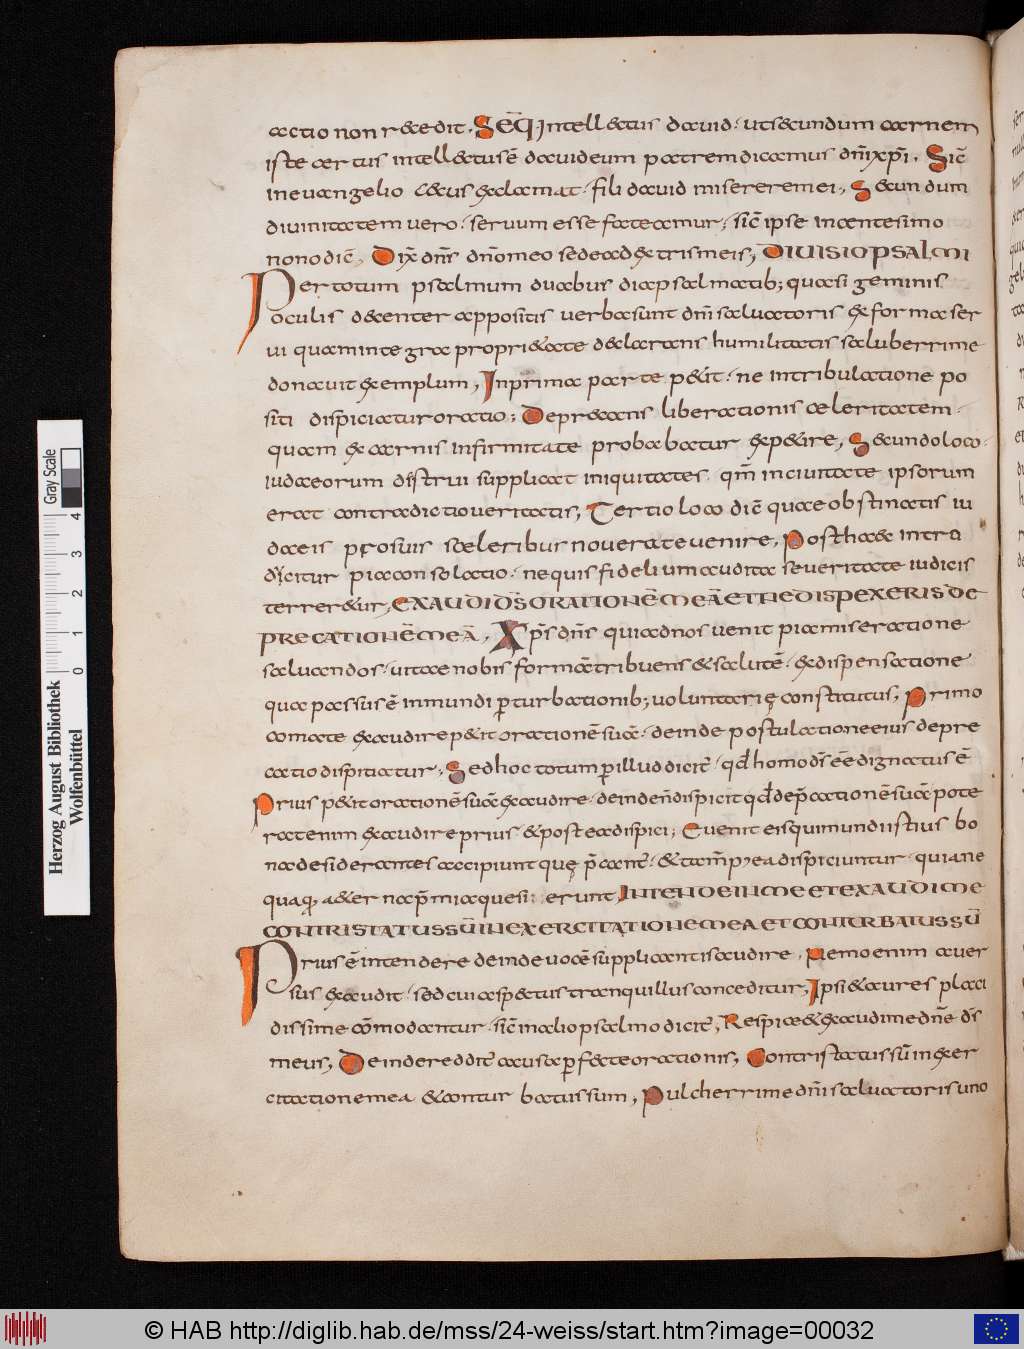 actio non recedit. Seq̄ Intellectus david. ut secundum carnem
iste certus intellectus ē david eum patrem dicamus dn̄i xp̄i. Sic̄
in evangelio cecus exclamat. fili david miserere mei, Secundum
divinitatem vero. servum esse fateamur, sic̄ ipse in centesimo
nono dic̄, Dix̄ dn̄s dn̄o meo sede ad extris meis, DIVISIO PSALMI
Per totum psalmum duabus diapsalmatib; quasi geminis
oculis decenter appositis verba sunt dn̄i salvatoris & forma ser
vi quam integra proprietate declarans humilitatis saluberrime
donavit exemplum, In prima parte petit. ne in tribulatione po
siti dispiciatur oratio; Deprecans liberationis celeritatem.
quam & carnis infirmitate probabatur expetire, Secundo loco
iudaeorum distrui supplicat iniquitates. qm̄ in civitate ipsorum
erat contradictio veritatis, Tertio loco dic̄ quae obstinatis iu
daeis pro suis sceleribus noverat evenire, Post haec intra
dicitur pia consolatio. ne quis fidelium audita severitate iudicis
terreretur, EXAUDI D̄S ORATIONĒ MEĀ ET NE DISPEXERIS DE
PRECATIONĒ MEĀ, Xp̄s dn̄s qui ad nos venit pia miseratione
salvandos. vitae nobis formā tribuens & salutē. & dispensatione
qua passus ē in mundi p̄turbationib; voluntarię constitutus, Primo
commate exaudire petit orationē suā. deinde postulatione eius depre
catio dispiciatur, Sed hoc totum p̄ illud dicit̄. qd̄ homo d̄s ēē dignatus ē
Prius petit orationē suā exaudire. deinde n̄ dispicit qd̄ dep̄cationē suā pote
rat enim exaudire prius & post ea dispici; Evenit eis qui mundi istius bo
na desiderantes accipiunt quę p̄cant̄. & tam̄ p⁹ ea dispiciuntur. quia ne
quaq̄, aeterna p̄mia quesierunt, INTENDE IN ME ET EXAUDI ME
CONTRISTATUS SŪ IN EXERCITATIONE MEA ET CONTURBATUS SŪ
Prius ē intendere deinde vocē supplicantis audire. Nemo enim aver
sus exaudit. sed cui aspectus tranquillus conceditur, Ipsi & aures placi
dissime cōmodantur. sic̄ in alio psalmo dicit̄, Respice & exaudi me dn̄e d̄s
meus, Deinde reddit̄ causa p̄fecte orationis, Contristatus sū in exer
citatione mea & contur batus sum, Pulcherrime dn̄i salvatoris uno
Herzog August Bibliothek
Wolfenbüttel
0 1 2 3 4 Gray Scale
© HAB http://diglib.hab.de/mss/24-weiss/start.htm?image=00032